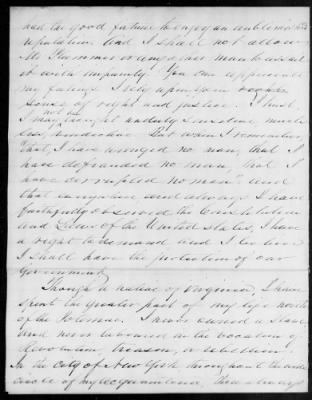 had the good fortune to enjoy an unblemished
reputation. And I shall not allow
Mr or any other man to assail
it with impunity. You can appreciate
my feelings. I rely upon your
sense of right and justice. I trust
I may not be thought unduly sensitive much
less vindictive. But when I remember
that, I have wronged no man, that I
have defrauded no man, that I
have corrupted no man, and
that everywhere and always I have
faithfully observed the Constitution
and Laws of the United States, I have
a right to demand and I believe
I shall have the protection of our
Government.
Though a native of Virginia I have
spent the greater part of my life north
of the Potomac. I never owned a slave
and never labored in the vocation of
Revolution, treason, or rebellion.
In the City of New York throughout the wide
circle of my acquaintance, I have always